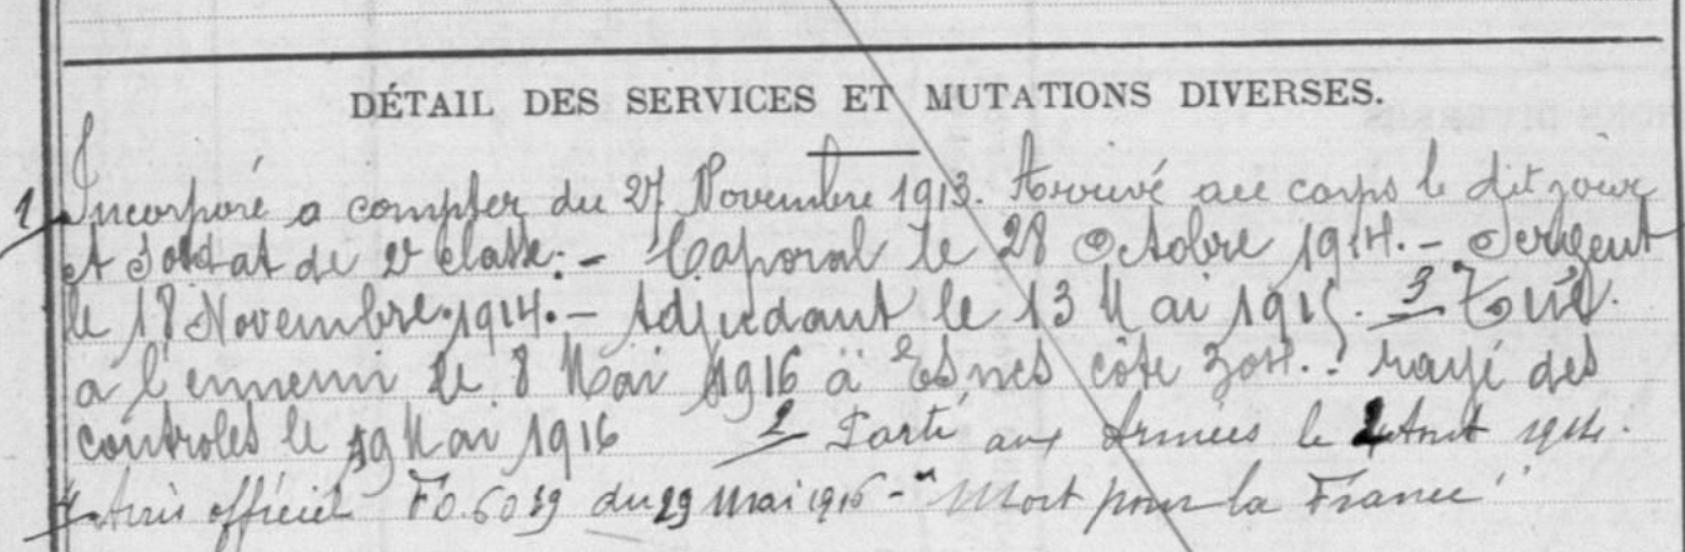 DÉTAIL DES SERVICES ET MUTATIONS DIVERSES.
1 Incorporé a compter du 27 Novembre 1913. Arrivé au corps le dit jour
et Soldat de 2e classe. - Caporal le 28 Octobre 1914. - Sergent
le 18 Novembre 1914. - Adjudant le 13 Mai 1915. 3 Tué
a l'ennemi le 8 Mai 1916 à Esnes côte 304. rayé des
controles le 19 Mai 1916 2 Parti aux Armées le 2 Aout 1914.
4 Avis officiel FO. 6039 du 29 Mai 1916 - "Mort pour la France"